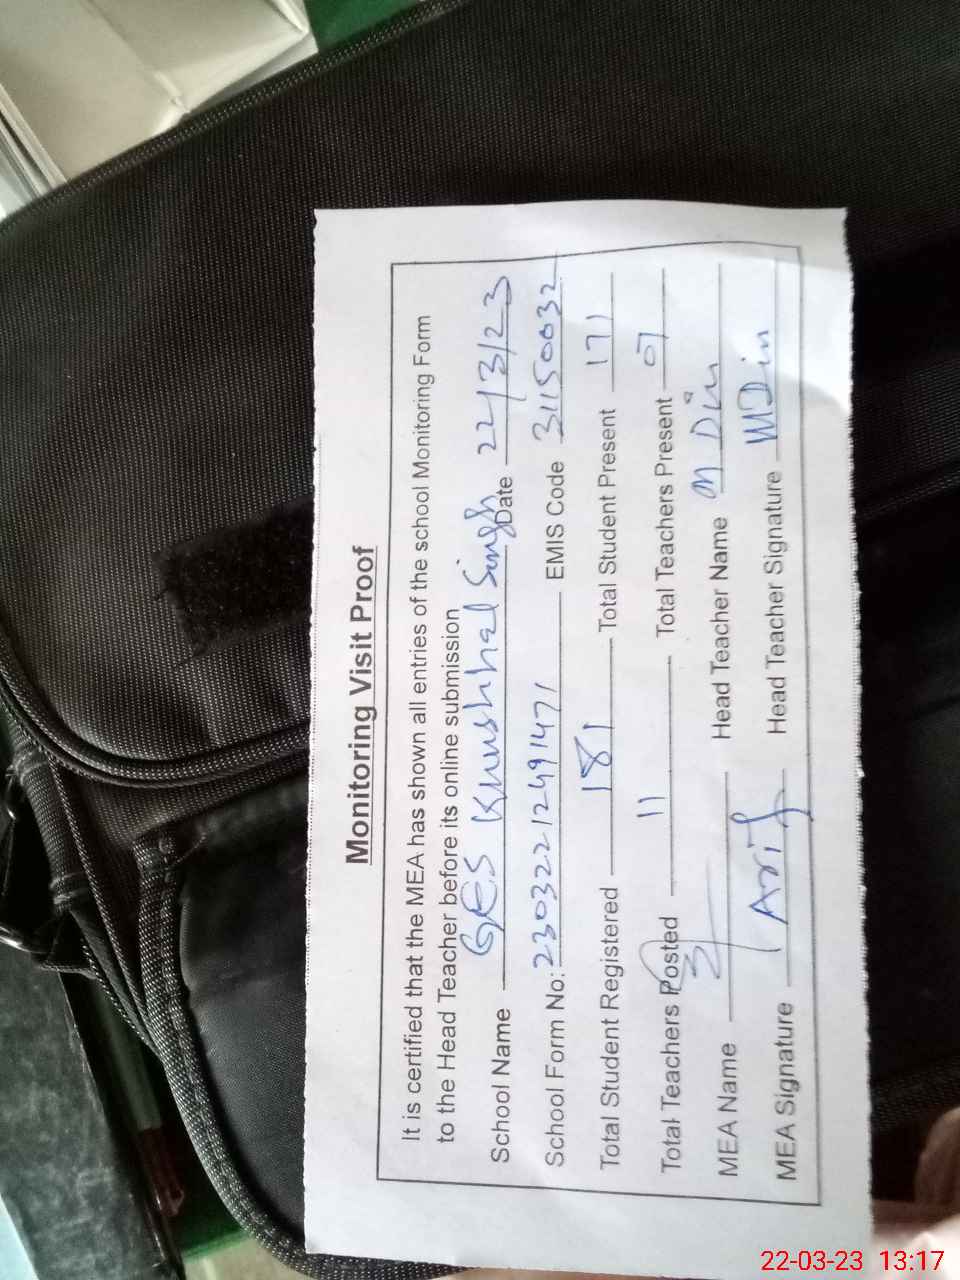 Monitoring Visit Proof
It is certified that the MEA has shown all entries of the school Monitoring Form
to the Head Teacher before its online submission
School Name GES Khushhal Singh Date 22/3/23
School Form No: 23032212491471 EMIS Code 31150032
Total Student Registered 181 Total Student Present 171
Total Teachers Posted 11 Total Teachers Present 07
MEA Name Head Teacher Name M Din
MEA Signature Arif Head Teacher Signature MDin
22-03-23 13:17